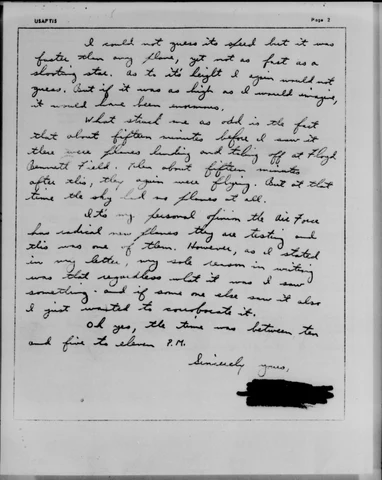 USAFTIS
Page 3
I could not guess its speed but it was
faster than any plane, yet not as fast as a
shooting star. As to its height I again would not
guess. But if it was as high as I would imagine,
it would have been enormous.
What struck me as odd is the fact
that about fifteen minutes before I saw it
there were planes landing and taking off at Floyd
Bennett Field. Then about fifteen minutes
after this, they again were flying. But at that
time the sky had no planes at all.
It's my personal opinion the Air Force
has radical new planes they are testing and
this was one of them. However, as I stated
in my letter, my sole reason in writing
was that regardless what it was I saw
something - and if some one else saw it also
I just wanted to corroborate it.
Oh yes, the time was between ten
and five to eleven P.M.
Sincerely yours,